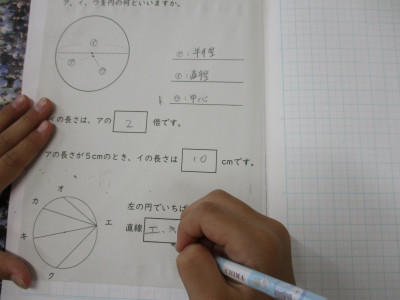 ア、イ、ウを円の何といいますか。
㋐:半径
㋑:直径
㋒:中心
イの長さは、アの 2 倍です。
アの長さが5cmのとき、イの長さは 10 cmです。
オ
カ
左の円でいちば
エ
直線 エ、キ
キ
ク